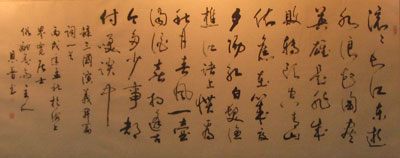 滚々长江东逝
水浪花淘尽
英雄是非成
败转头空青山
依旧在几度
夕阳红白发渔
樵江渚上惯看
秋月春风一壶
浊酒喜相逢古
今多少事都
付笑谈中
录三国演义开篇
词一首